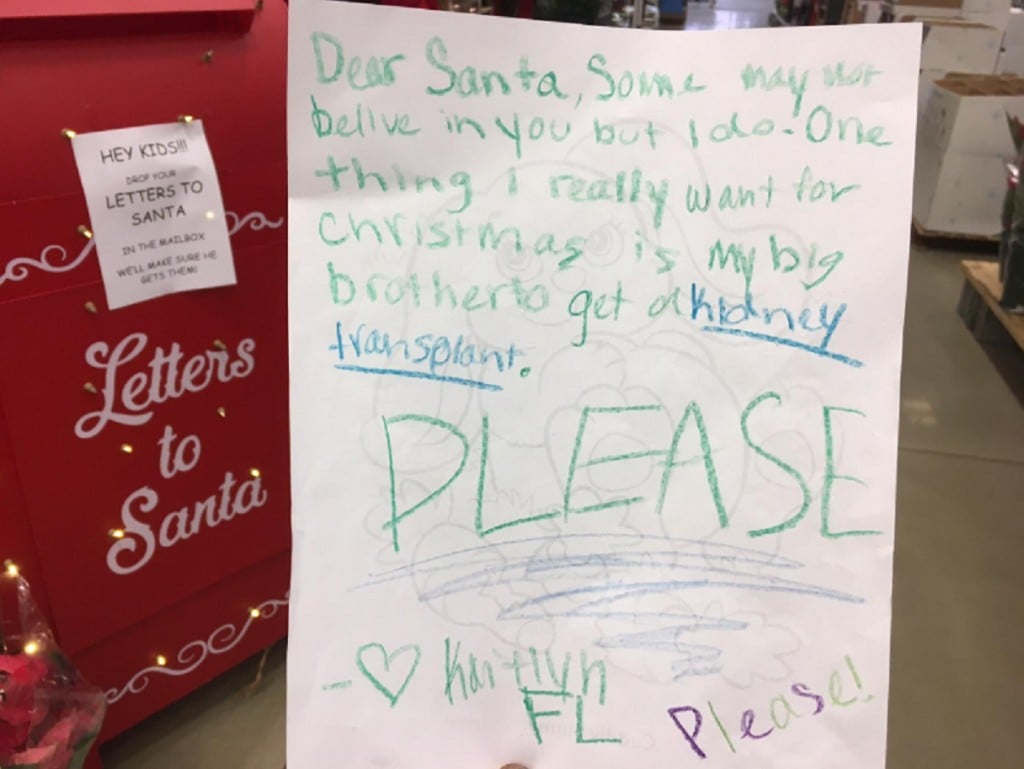 HEY KIDS!!!
DROP YOUR
LETTERS TO
SANTA
IN THE MAILBOX
WE'LL MAKE SURE HE
GETS THEM!
Letters
to
Santa
Dear Santa, Some may not
belive in you but I do. One
thing i really want for
christmas is my big
brother to get a kidney
transplant.
PLEASE
- ♡ Kaitlyn
FL
Please!